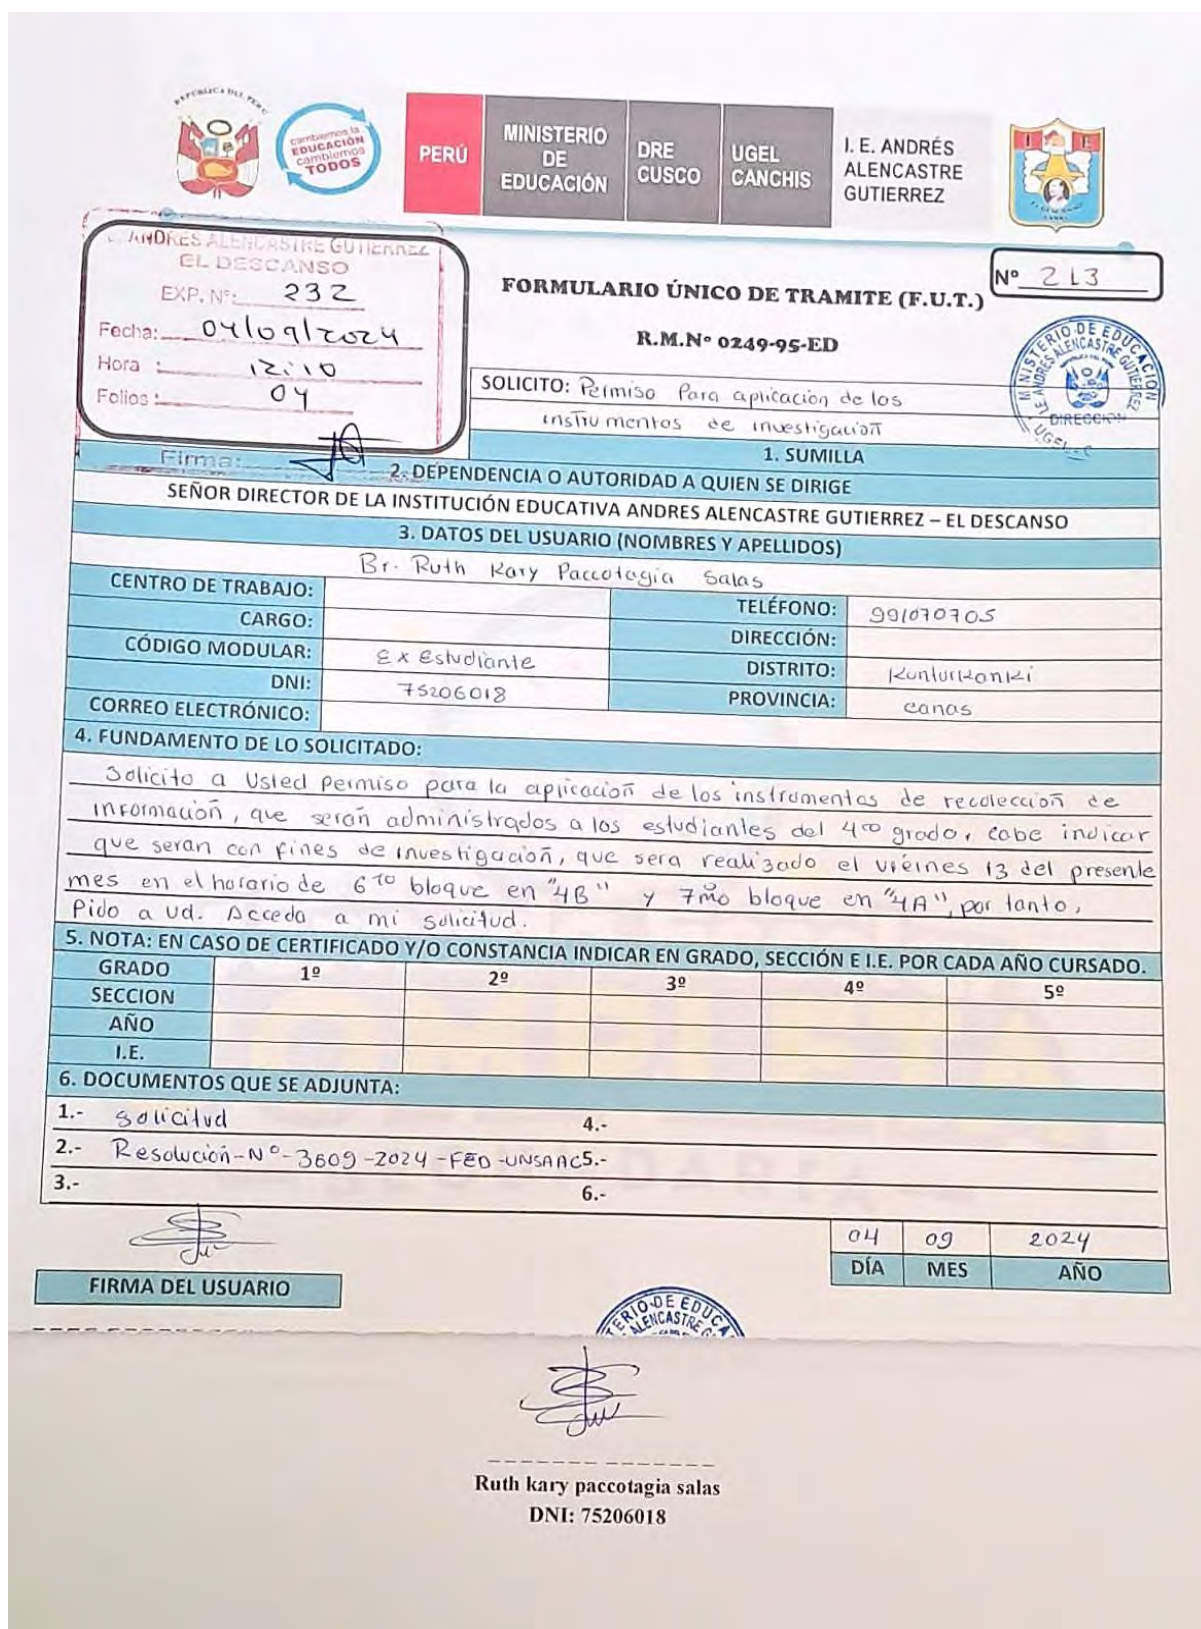 REPUBLICA DEL PERU
cambiemos la
EDUCACIÓN
cambiemos
TODOS
PERÚ
MINISTERIO
DE
EDUCACIÓN
DRE
CUSCO
UGEL
CANCHIS
I. E. ANDRÉS
ALENCASTRE
GUTIERREZ
I E
ANDRES ALENCASTRE GUTIERREZ
EL DESCANSO
EXP. Nº: 232
Fecha: 04/09/2024
Hora : 12:10
Folios : 04
Firma:
Nº 213
FORMULARIO ÚNICO DE TRAMITE (F.U.T.)
R.M.Nº 0249-95-ED
MINISTERIO DE EDUCACIÓN
I.E ANDRES ALENCASTRE GUTIERREZ
DIRECCIÓN
UGEL - C
SOLICITO: Permiso Para aplicación de los
instrumentos de investigación
1. SUMILLA
2. DEPENDENCIA O AUTORIDAD A QUIEN SE DIRIGE
SEÑOR DIRECTOR DE LA INSTITUCIÓN EDUCATIVA ANDRES ALENCASTRE GUTIERREZ – EL DESCANSO
3. DATOS DEL USUARIO (NOMBRES Y APELLIDOS)
Br. Ruth Kary Paccotagia Salas
CENTRO DE TRABAJO: TELÉFONO: 991070705
CARGO: DIRECCIÓN:
CÓDIGO MODULAR: Ex Estudiante DISTRITO: Kunturkanki
DNI: 75206018 PROVINCIA: canas
CORREO ELECTRÓNICO:
4. FUNDAMENTO DE LO SOLICITADO:
Solicito a Usted permiso para la aplicación de los instrumentos de recolección de
información, que serán administrados a los estudiantes del 4to grado, cabe indicar
que seran con fines de investigación, que sera realizado el viernes 13 del presente
mes en el horario de 6to bloque en "4B" y 7mo bloque en "4A", por tanto,
Pido a Ud. Acceda a mi solicitud.
5. NOTA: EN CASO DE CERTIFICADO Y/O CONSTANCIA INDICAR EN GRADO, SECCIÓN E I.E. POR CADA AÑO CURSADO.
GRADO 1º 2º 3º 4º 5º
SECCION
AÑO
I.E.
6. DOCUMENTOS QUE SE ADJUNTA:
1.- Solicitud 4.-
2.- Resolución-Nº-3609-2024-FED-UNSAAC 5.-
3.- 6.-
04 09 2024
DÍA MES AÑO
FIRMA DEL USUARIO
Ruth kary paccotagia salas
DNI: 75206018